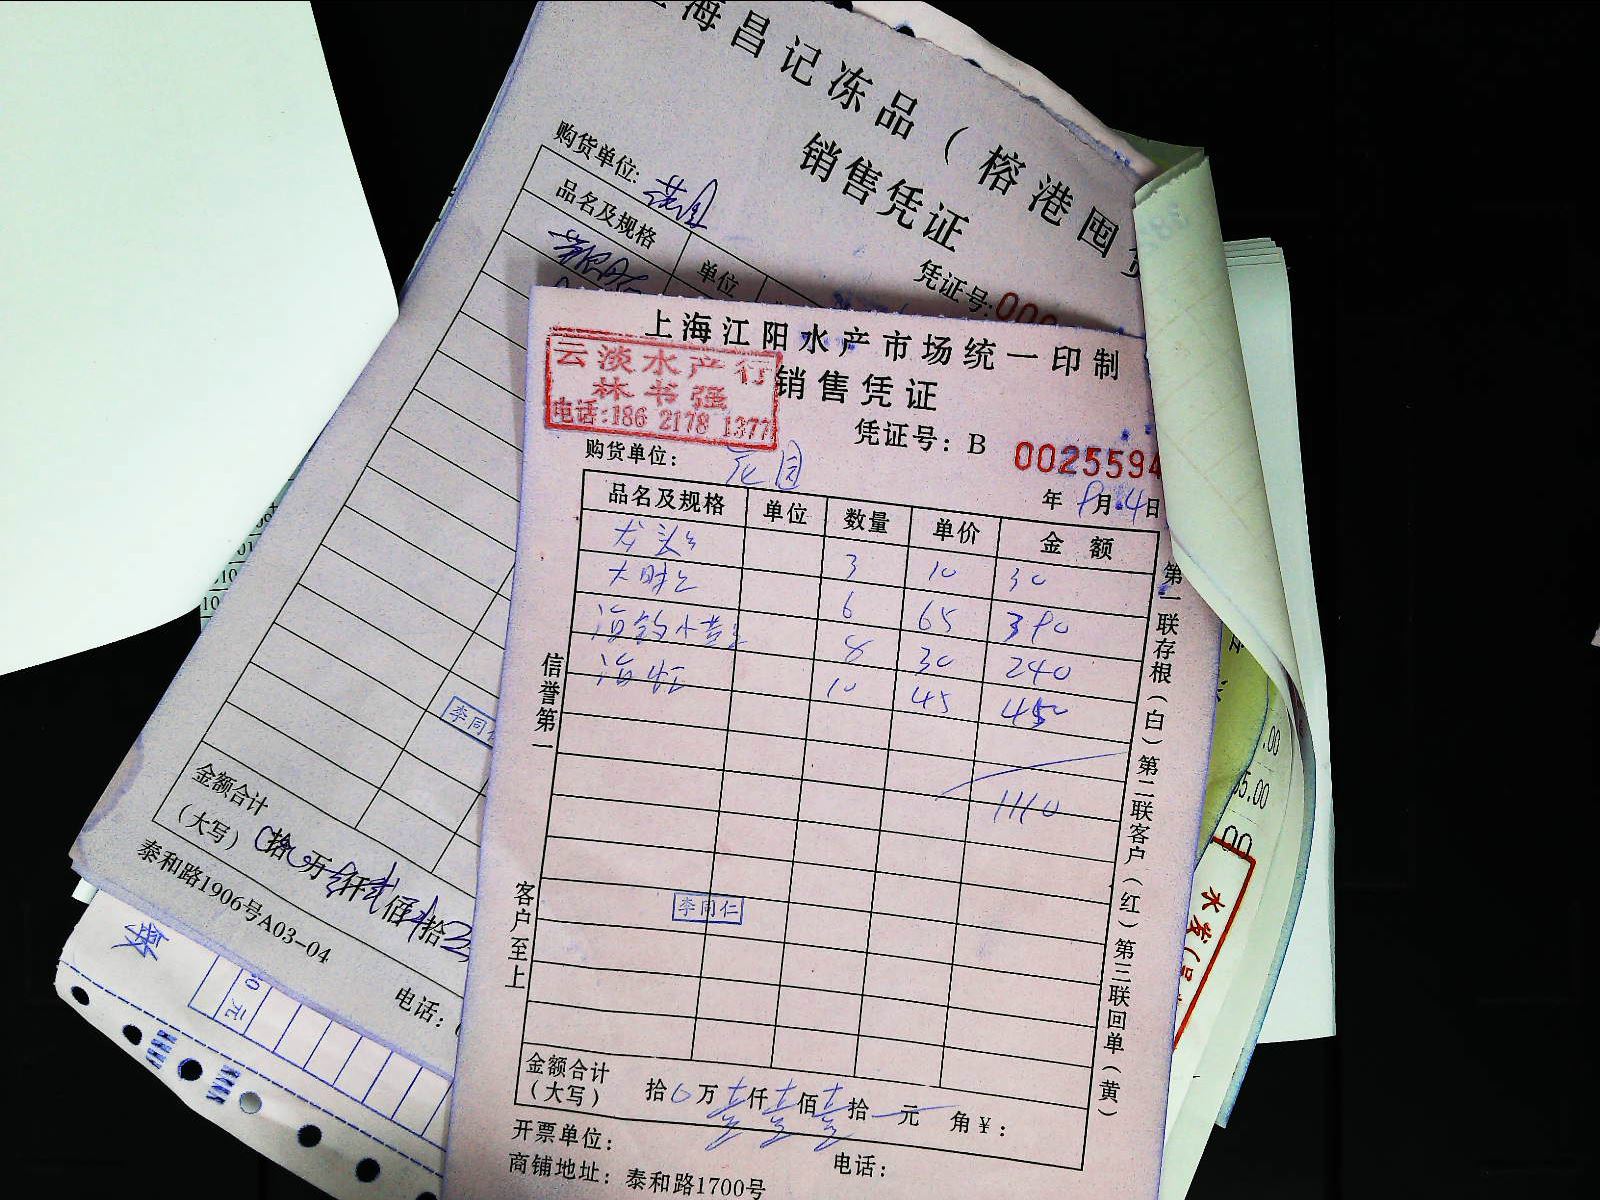 上海昌记冻品（榕港囤
销售凭证
购货单位:
凭证号:000
品名及规格 单位
李同仁
金额合计
（大写） 拾 万 仟 佰 拾
泰和路1906号A03-04
电话:
元
上海江阳水产市场统一印制
云淡水产行
林书强
电话:186 2178 1377
销售凭证
凭证号: B 0025594
购货单位: 花园
年 9月4日
品名及规格 单位 数量 单价 金额
龙头 3 10 30
大明 6 65 390
海钓小黄 8 30 240
海 10 45 450
1110
李同仁
金额合计
（大写） 拾0万壹仟壹佰壹拾 元 角￥:
开票单位:
电话:
商铺地址: 泰和路1700号
信誉第一
客户至上
第一联存根（白）第二联客户（红）第三联回单（黄）
.00
5.00
00
水发(